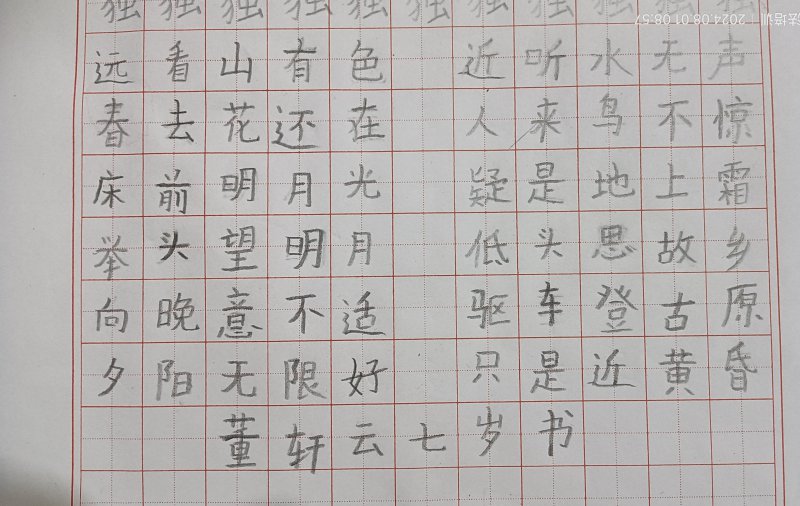 独 独 独 独 独 独 独 独 独 独 独
远看山有色 近听水无声
春去花还在 人来鸟不惊
床前明月光 疑是地上霜
举头望明月 低头思故乡
向晚意不适 驱车登古原
夕阳无限好 只是近黄昏
董轩云七岁书
2024.08.01 08:57